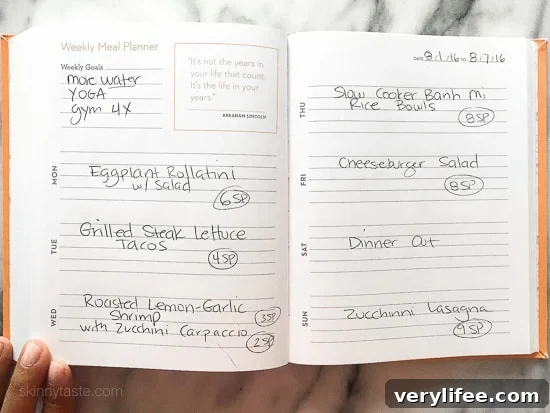 Weekly Meal Planner
Weekly Goals
more water
YOGA
Gym 4X
"It's not the years in
your life that count.
It's the life in your
years."
ABRAHAM LINCOLN
MON
Eggplant Rollatini
w/ Salad
6 SP
TUE
Grilled Steak Lettuce
Tacos
4 SP
WED
Roasted Lemon-Garlic
Shrimp
3 SP
with Zucchini Carpaccio
2 SP
DATE 8/1/16 TO 8/7/16
THU
Slow Cooker Banh Mi
Rice Bowls
8 SP
FRI
Cheeseburger Salad
8 SP
SAT
Dinner Out
SUN
Zucchinni Lasagna
9 SP
skinnytaste.com
verylifee.com